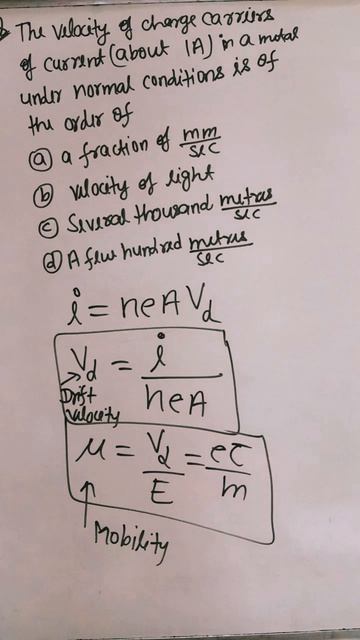 The velocity of charge carriers
of current (about 1A) in a metal
under normal conditions is of
the order of
(a) a fraction of mm/sec
(b) velocity of light
(c) Several thousand metres/sec
(d) A few hundred metres/sec
i = neAVd
Vd = i/neA
Drift
velocity
μ = Vd/E = eτ/m
Mobility